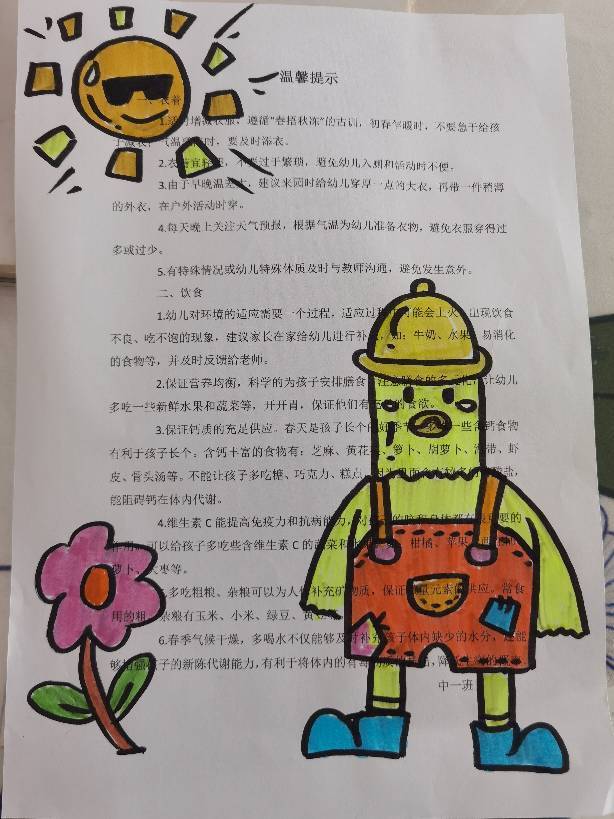 温馨提示
一、衣着
1.适时增减衣服，遵循“春捂秋冻”的古训，初春乍暖时，不要急于给孩
子减衣，气温 时，要及时添衣。
2.衣着宜 ，不要过于繁琐，避免幼儿入厕和活动时不便。
3.由于早晚温差大，建议来园时给幼儿穿厚一点的大衣，再带一件稍薄
的外衣，在户外活动时穿。
4.每天晚上关注天气预报，根据气温为幼儿准备衣物，避免衣服穿得过
多或过少。
5.有特殊情况或幼儿特殊体质及时与教师沟通，避免发生意外。
二、饮食
1.幼儿对环境的适应需要一个过程，适应过 可能会上火，出现饮食
不良、吃不饱的现象，建议家长在家给幼儿进行补 ，如：牛奶、水果、易消化
的食物等，并及时反馈给老师。
2.保证营养均衡，科学的为孩子安排膳食， 让幼儿
多吃一些新鲜水果和蔬菜等，开开胃，保证他们有 的食欲。
3.保证钙质的充足供应。春天是孩子长个的好季节， 一些含钙食物
有利于孩子长个。含钙丰富的食物有：芝麻、黄花 、萝卜、胡萝卜、海带、虾
皮、骨头汤等。不能让孩子多吃糖、巧克力、糕点， 酸盐，
能阻碍钙在体内代谢。
4.维生素 C 能提高免疫力和抗病能力，对 的
作用，可以给孩子多吃些含维生素 C 的蔬菜和 柑橘、苹果、
萝卜、 枣等。
多吃粗粮、杂粮可以为人体补充矿物质，保证 元素 供应。常食
用的粗、杂粮有玉米、小米、绿豆、黄
6.春季气候干燥，多喝水不仅能够及时补充孩子体内缺少的水分，还能
够增强孩子的新陈代谢能力，有利于将体内的有毒
中一班